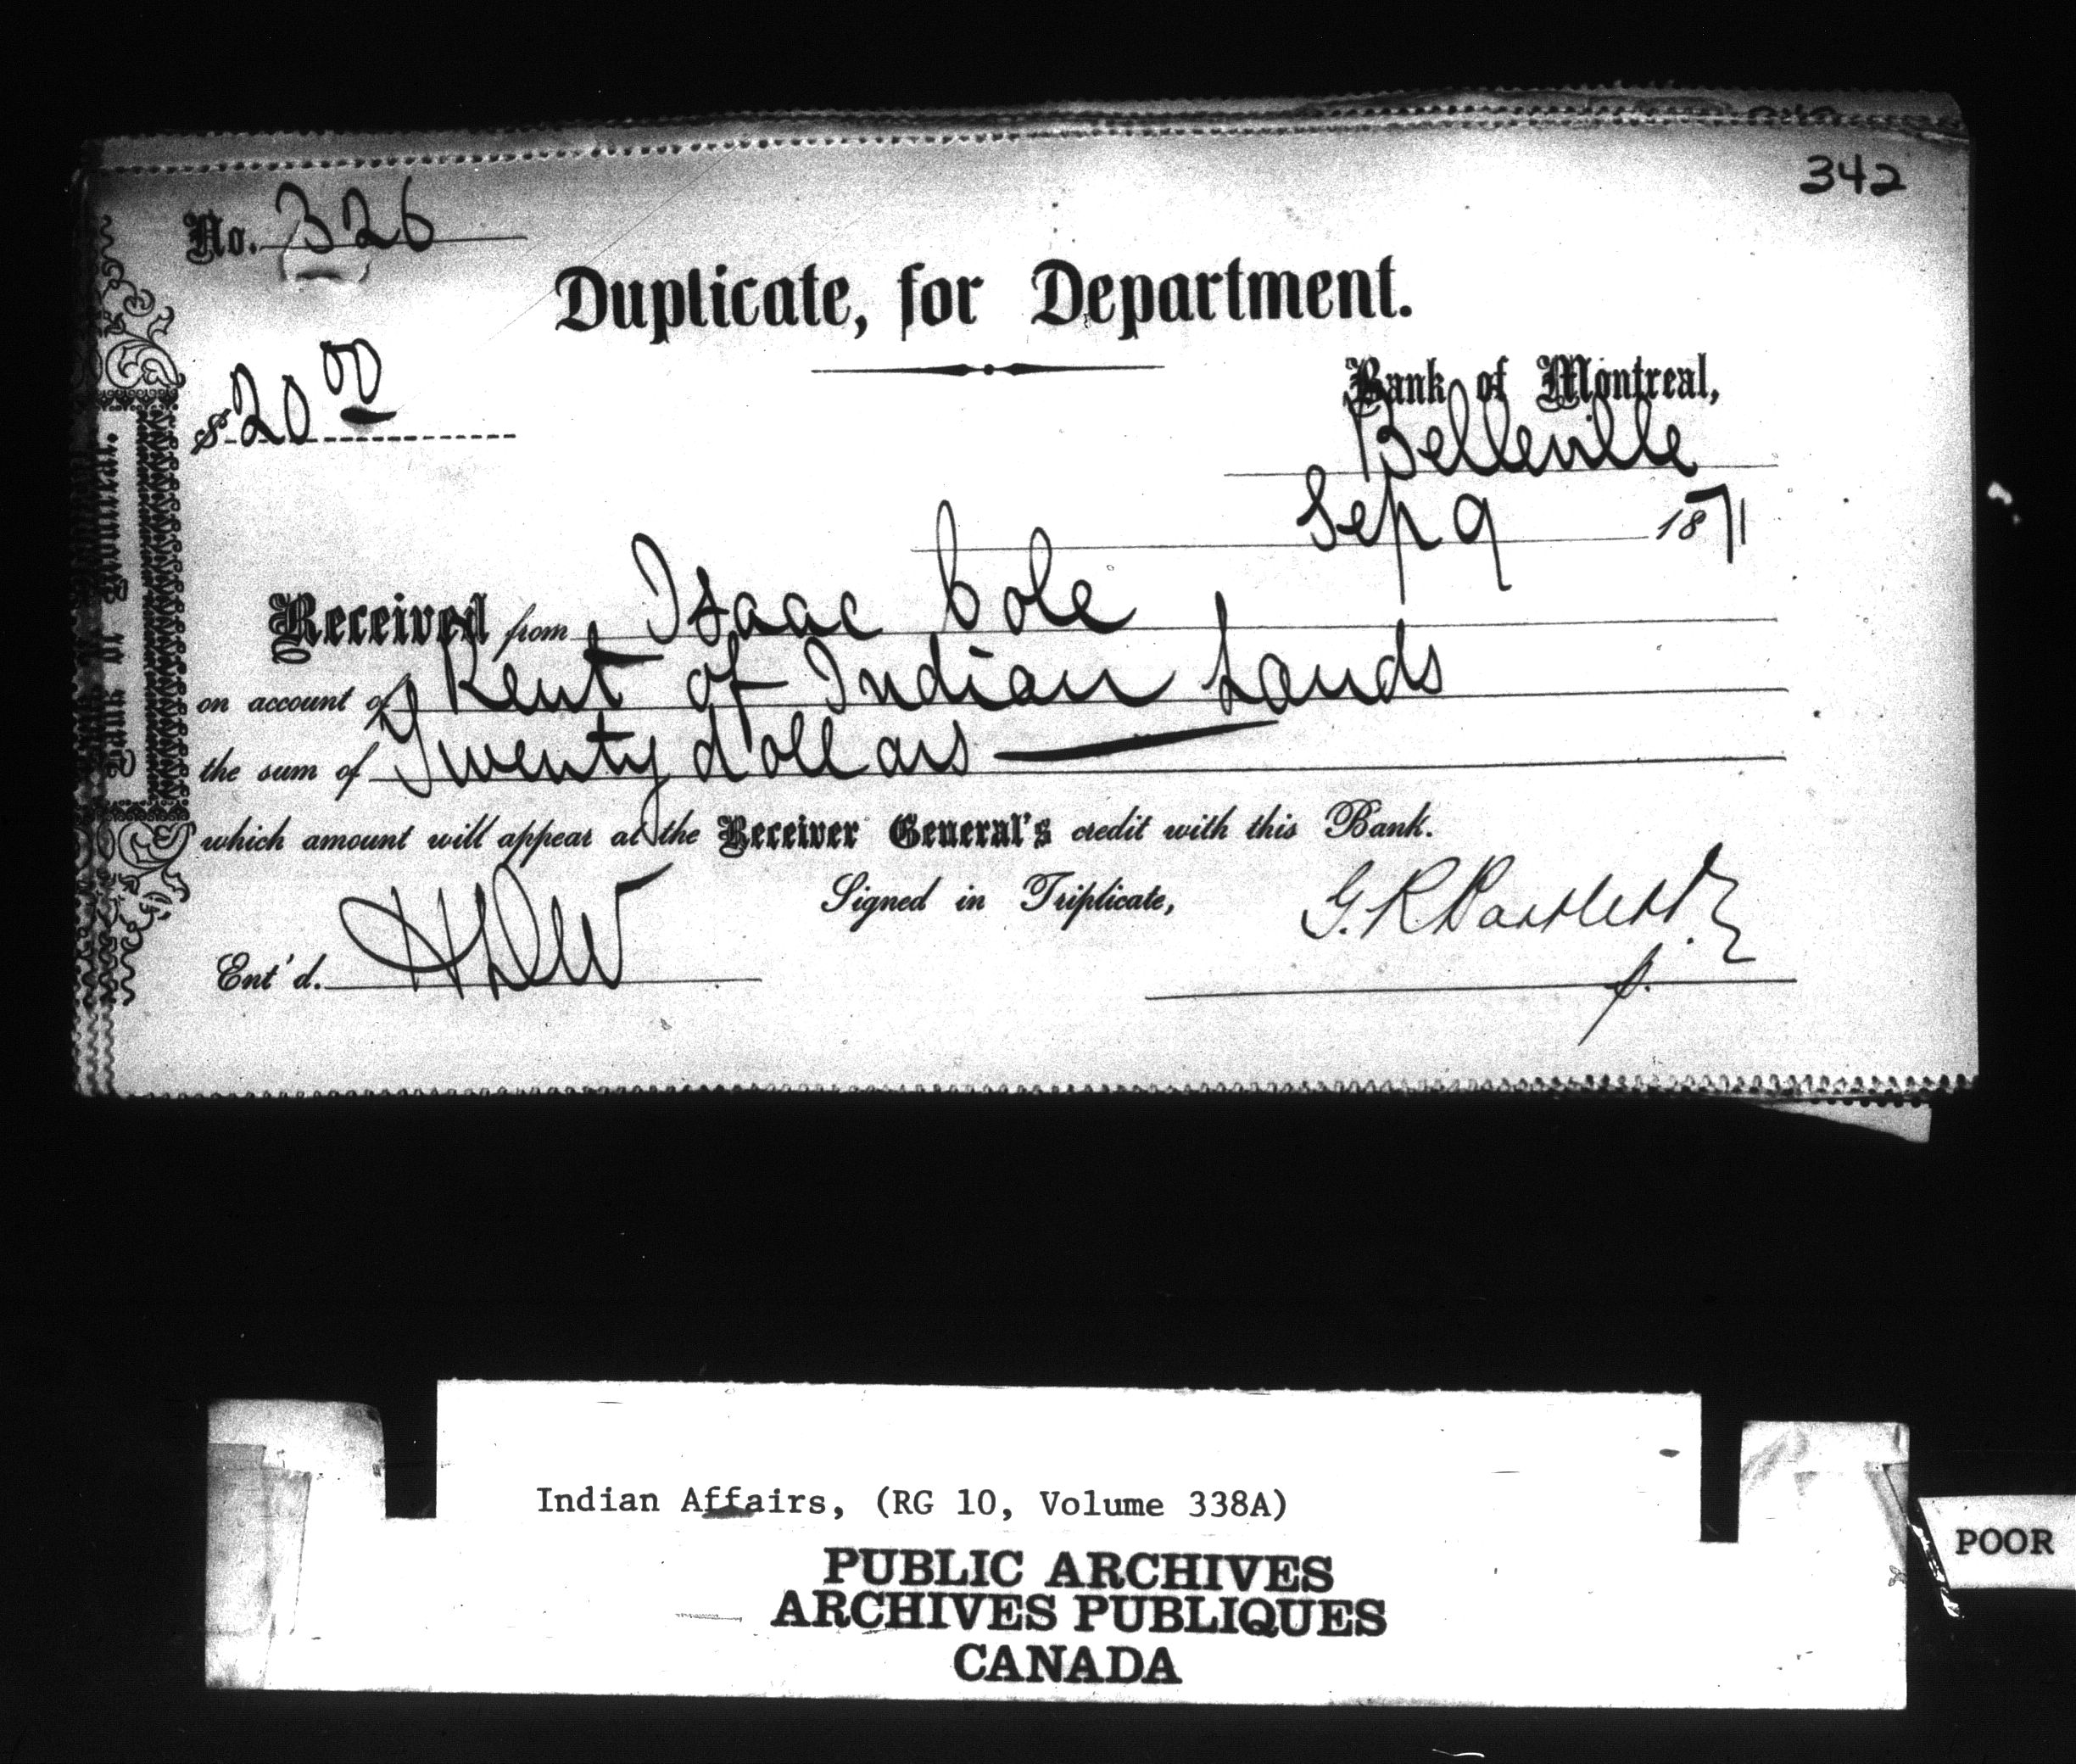 342
No. 326
Duplicate, for Department.
$20 00
Bank of Montreal,
Belleville
Sep 9 1871
Received from Isaac Cole
on account of Rent of Indian Lands
the sum of Twenty dollars
which amount will appear at the Receiver General's credit with this Bank.
Signed in Triplicate,
G. R. Bartlett
Ent'd.
Bank of Montreal.
Indian Affairs, (RG 10, Volume 338A)
PUBLIC ARCHIVES
ARCHIVES PUBLIQUES
CANADA
POOR